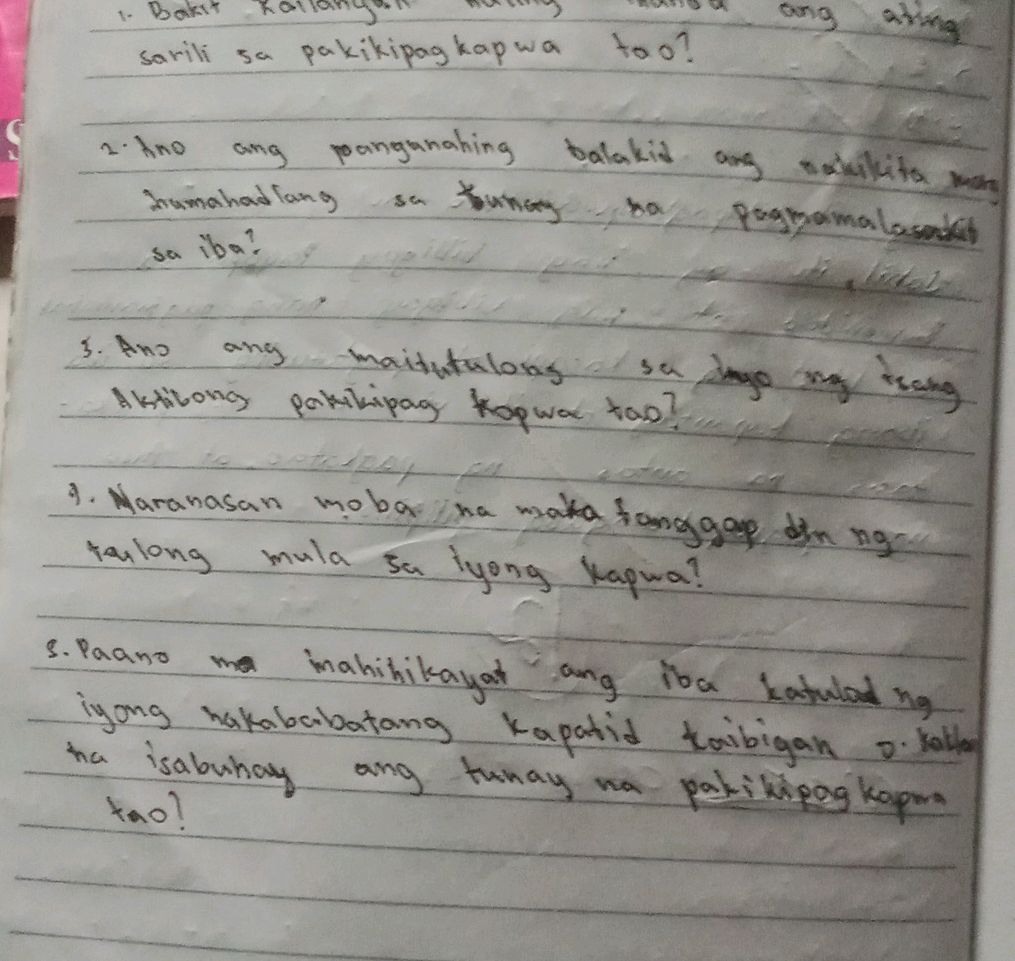 1. Bakit kailangan nating ang ating
sarili sa pakikipagkapwa tao?
2. Ano ang panganahing balakid ang nakikita mong
humahadlang sa tunay na pagmamalasakit
sa iba?
3. Ano ang maitutulong sa ng isang
Aktibong pakikipag kapwa tao?
4. Naranasan moba na maka tanggap din ng
tulong mula sa iyong kapwa?
5. Paano mo mahihikayat ang iba katulad ng
iyong nakababatang kapatid kaibigan o.
na isabuhay ang tunay na pakikipag kapwa
tao?